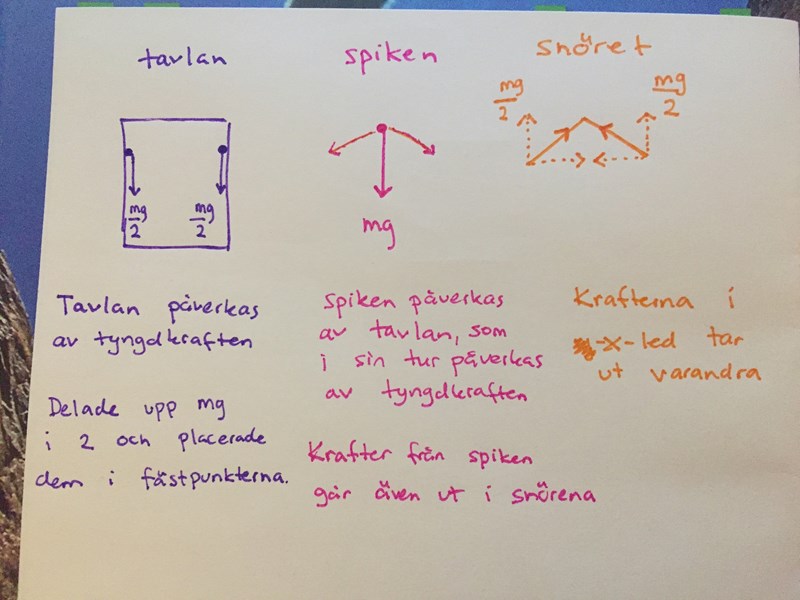 tavlan
mg
2
mg
2
Tavlan påverkas
av tyngdkraften
Delade upp mg
i 2 och placerade
dem i fästpunkterna.
spiken
mg
Spiken påverkas
av tavlan, som
i sin tur påverkas
av tyngdkraften
Krafter från spiken
går även ut i snörena
snöret
mg
2
mg
2
Krafterna i
-x-led tar
ut varandra